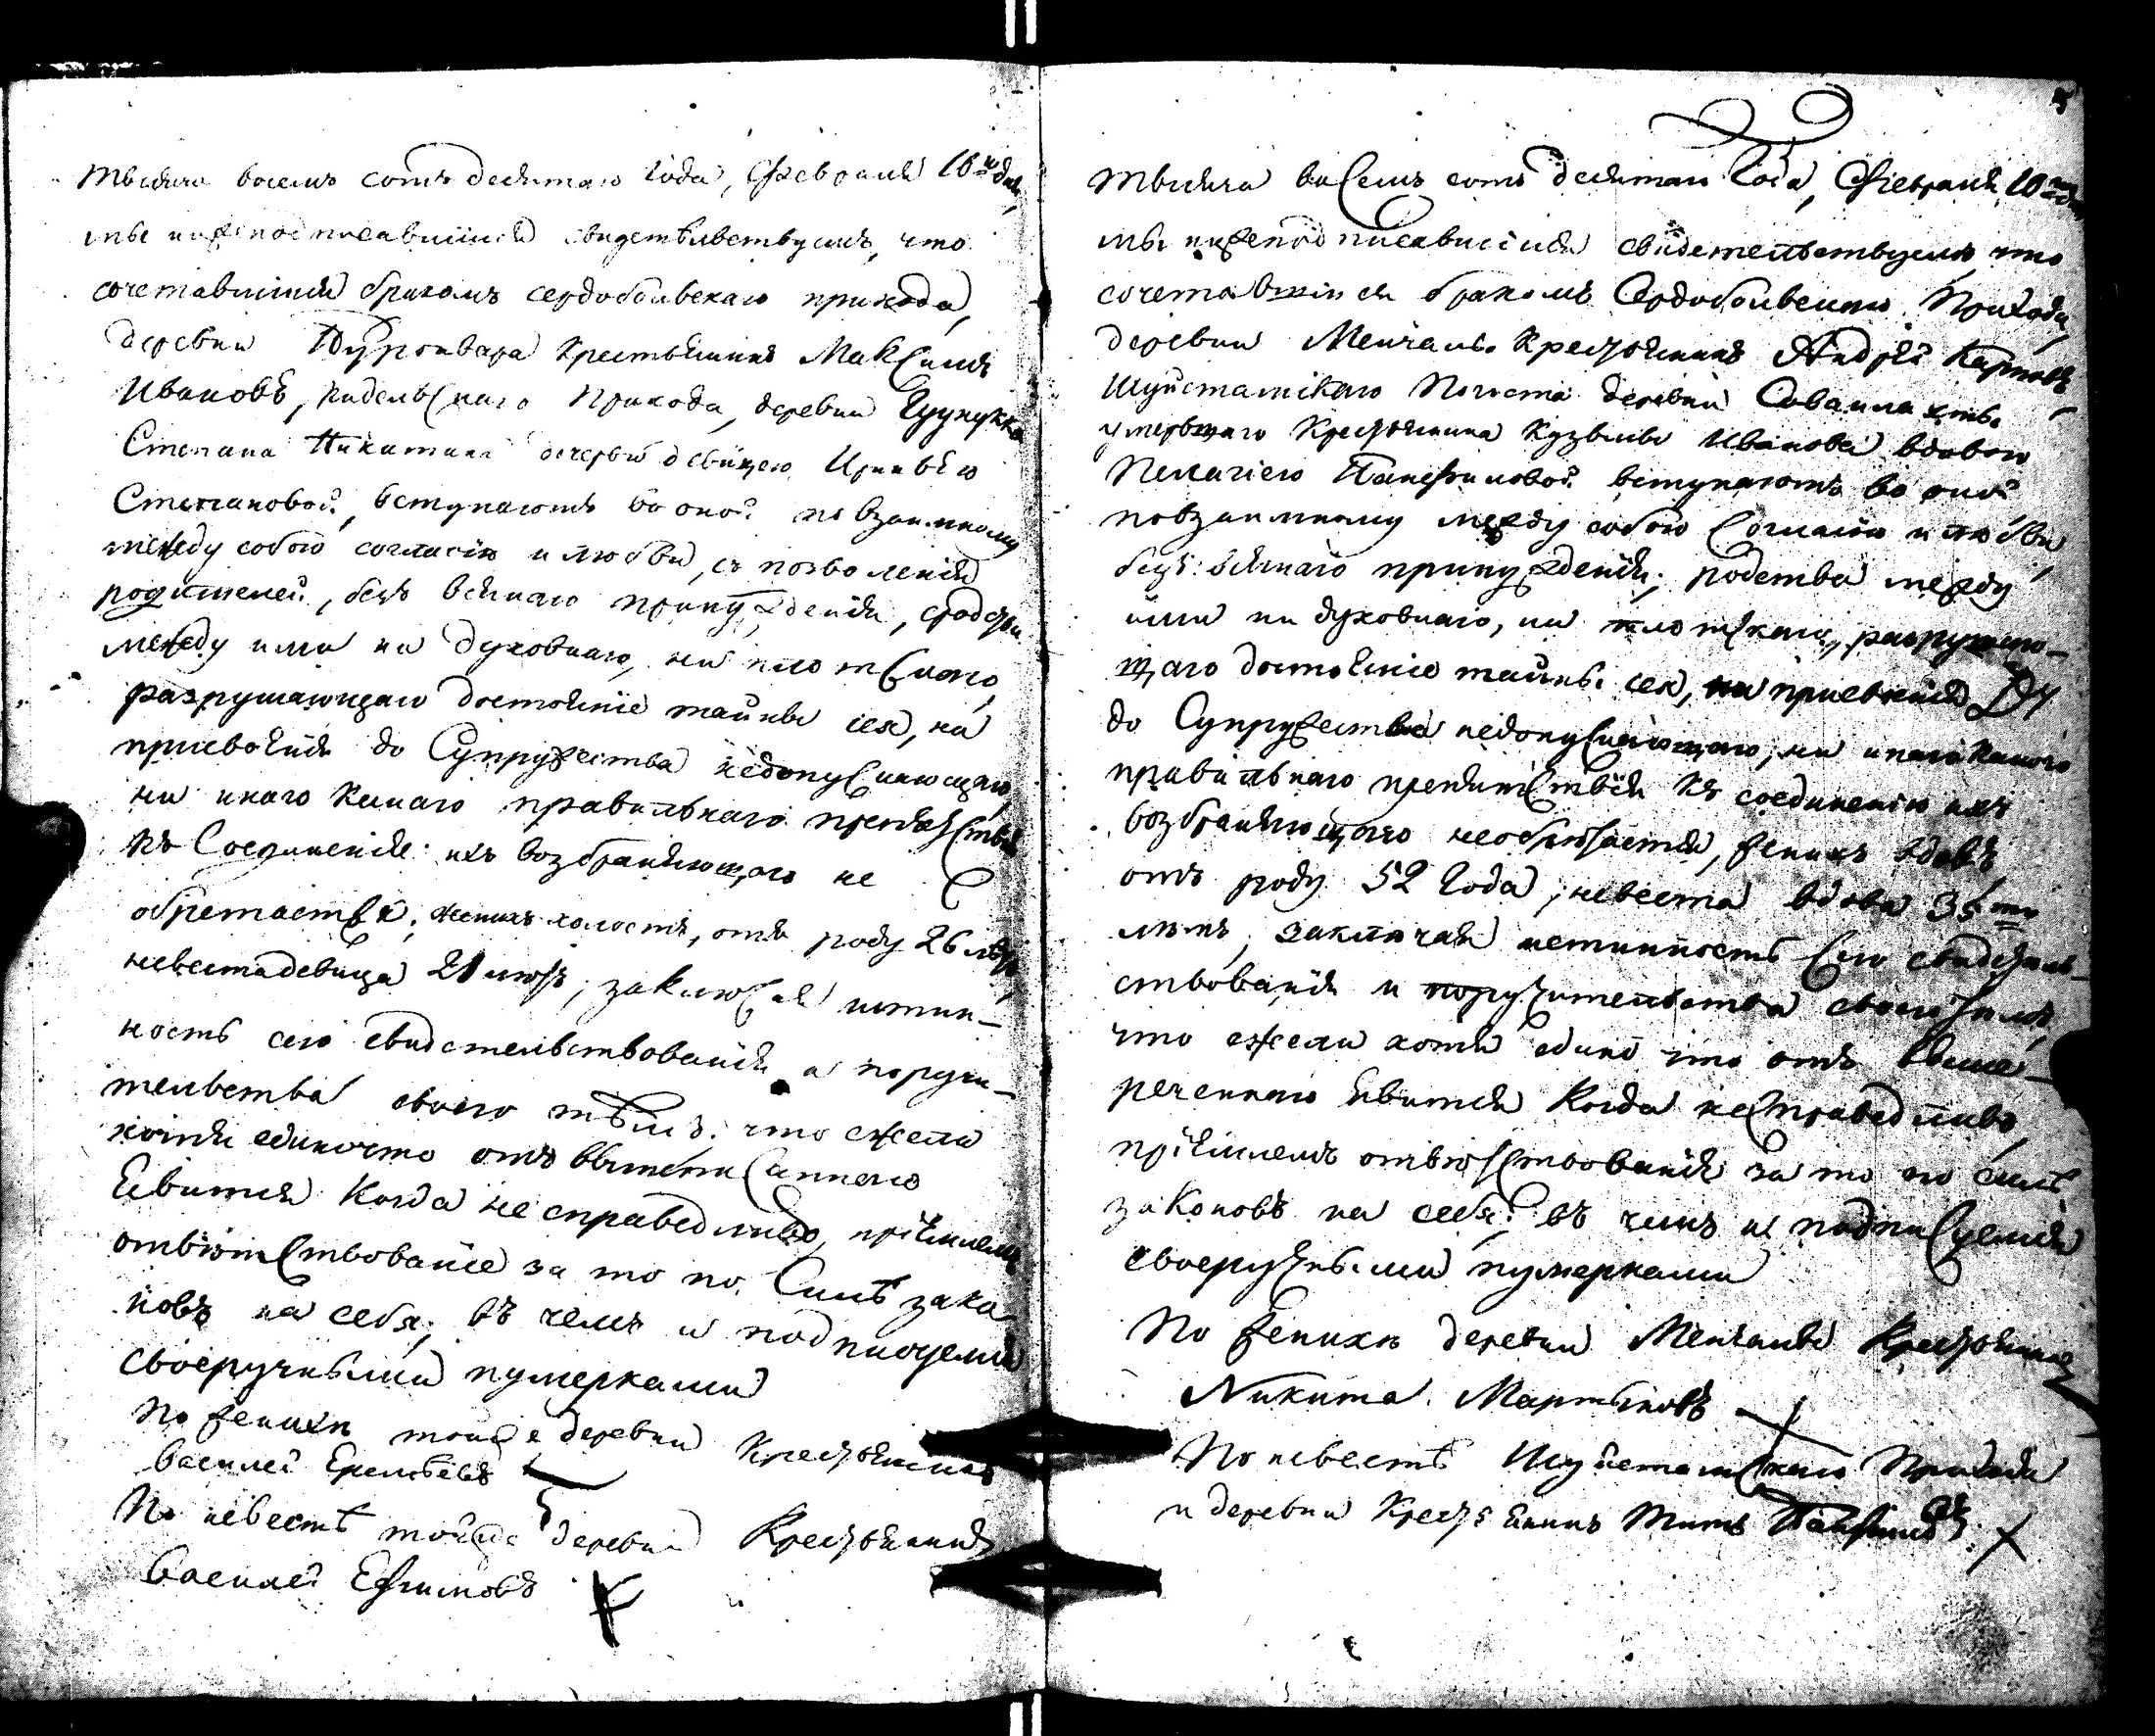 тысяча восемь сотъ десятаго года, Февраля 16го дня,
мы нижеподписавшіися свидетѣльствуемъ, что
сочетавшійся бракомъ сердобольскаго прихода,
деревни крестьянинъ Максимъ
Ивановъ, прихода, деревни
Степана Никитина дочерью девицею Ириньею
Степановой, вступаютъ во оной по взаимному
между собою согласію и любви, съ позволенія
родителей, безъ всякаго принужденія, сродства
между ими ни духовнаго, ни плотскаго,
разрушающаго достояніе тайны сея, ни
присвоянія до Супружества недопускающаго,
ни инаго какаго правильнаго препятствія
къ Соединенію ихъ возбраняющаго не
обретается, женихъ холостъ, отъ роду 26 летъ,
невеста девица 21 летъ; заключая истин-
ность сего свидетельствованія и поручи-
тельства своего тѣмъ: что ежели
хотя единочто отъ вышеписаннаго
явится когда не справедливо, пріемлемъ
отвѣтствованіе за то по Силѣ зако-
новъ на себя; въ чемъ и подписуемся
своеручными нумерками
По женихе тойже деревни Крестьянинъ
Василей Еремѣевъ
По невестѣ тойже деревни Крестьянинъ
Василей Ефимовъ
тысяча восемь сотъ десятаго года, Февраля 10го дня
мы нижеподписавшіися свидетельствуемъ, что
сочетавшійся бракомъ Сердобольскаго Прихода,
деревни Менчалы Крестьянинъ Андрей Карповъ,
Шуйстамскаго Погоста деревни
умершаго Крестьянина Кузьмы Иванова вдовою
Пелагіею Панфиловой вступаютъ во оной
повзаимному между собою согласію и любви,
безъ всякаго принужденія; родства между
ими ни духовнаго, ни плотскаго, разрушаю-
щаго достояніе тайны сея, ни присвоянія
до Супружества недопускающаго, ни инаго какого
правильнаго препятствія къ соединенію ихъ
возбраняющаго необретается, женихъ вдовъ,
отъ роду 52 года, невеста вдова 35ти
летъ, заключая истинность сего свидетель-
ствованія и поручительства своего тѣмъ
что ежели хотя едино что отъ выше-
реченнаго явится когда несправедливо,
пріемлемъ отвѣтствованія за то по силѣ
законовъ на себя; въ чемъ и подписуемся
своеручными нумерками
По женихе деревни Менчалы Крестьянинъ
Никита Мартыновъ
По невестѣ Шуйстамскаго Прихода
и деревни Крестьянинъ Титъ Панфиловъ